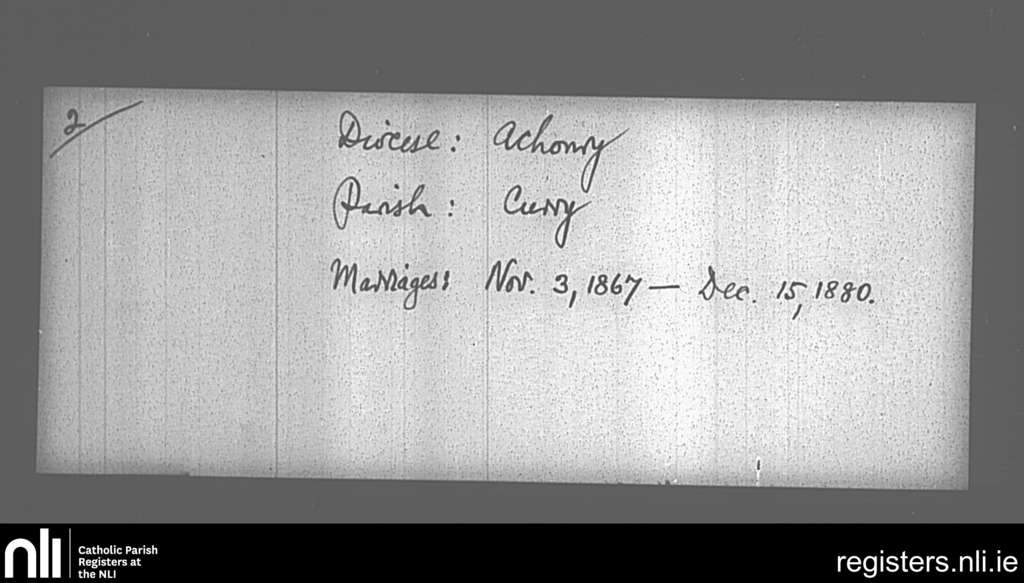 2
Diocese: Achonry
Parish: Curry
Marriages: Nov. 3, 1867 — Dec. 15, 1880.
nli
Catholic Parish
Registers at
the NLI
registers.nli.ie